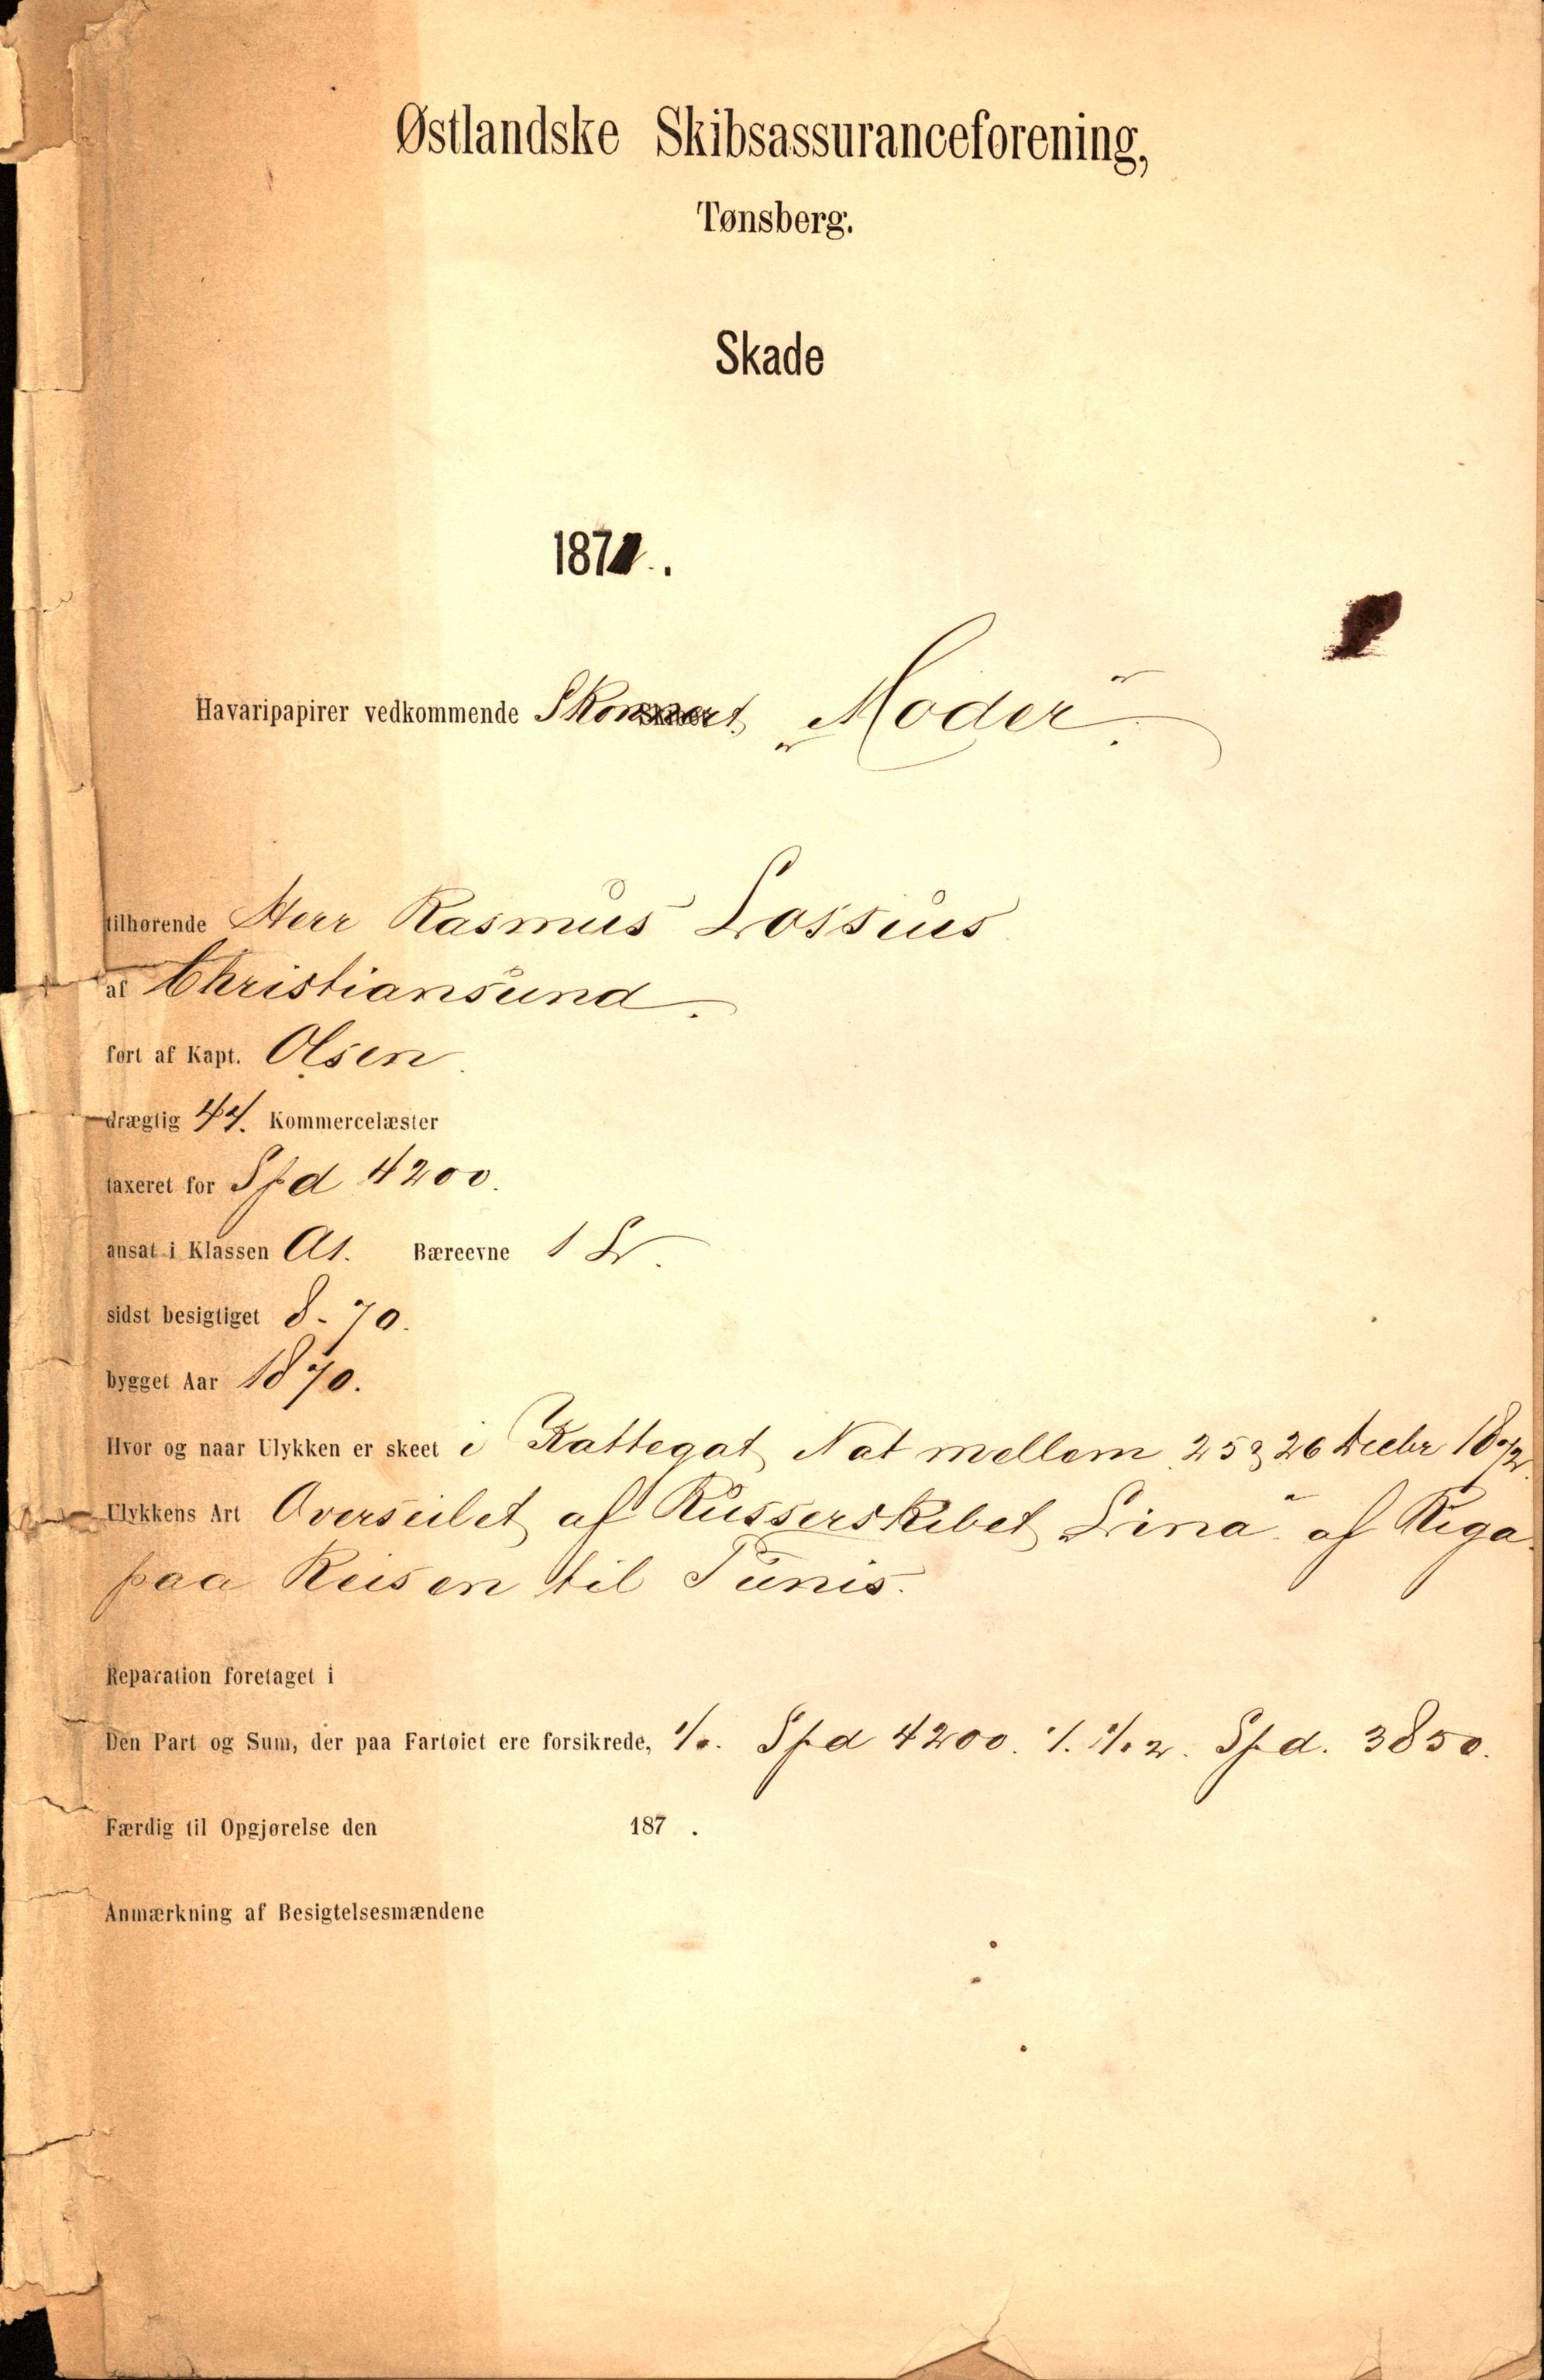 Østlandske Skibsassuranceforening,
Tønsberg.
Skade
187
Havaripapirer vedkommende Skonnert „Moder“.
tilhørende Herr Rasmus Lossius
af Christiansund.
ført af Kapt. Olsen.
drægtig 44. Kommercelæster
taxeret for Spd 4200.
ansat i Klassen A1. Bæreevne 1 L.
sidst besigtiget 8-70.
bygget Aar 1870.
Hvor og naar Ulykken er skeet i Kattegat Nat mellem 25 & 26 Decbr 1872.
Ulykkens Art Overseilet af Russerskibet Lina“ af Riga
paa Reisen til Tunis.
Reparation foretaget i
Den Part og Sum, der paa Fartøiet ere forsikrede, 1/1. Spd 4200. Spd. 3850.
Færdig til Opgjørelse den 187 .
Anmærkning af Besigtelsesmændene